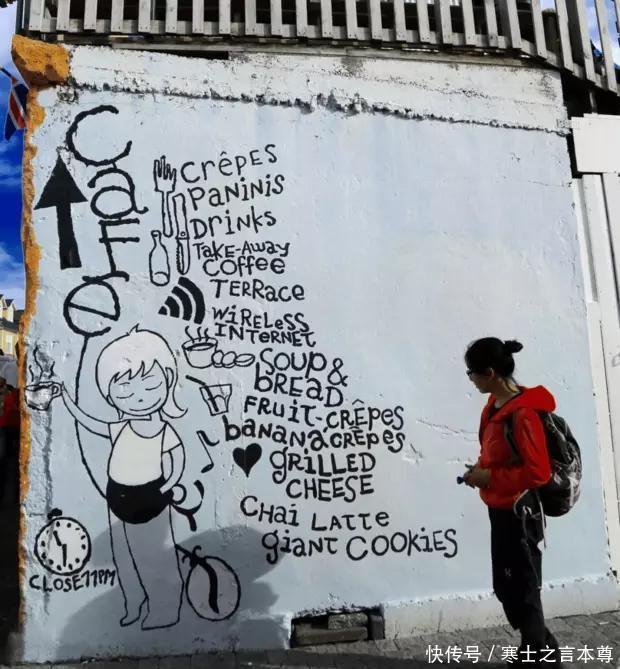 café
crêpes
paninis
DRinks
Take-Away
coffee
TERRace
WiReLess
inTeRneT
soup &
bReaD
FRuiT-cRêpes
bananacRêpes
gRiLLeD
cheese
chai LaTTe
gianT cookies
CLOSE 11PM
快传号 / 寒士之言本尊